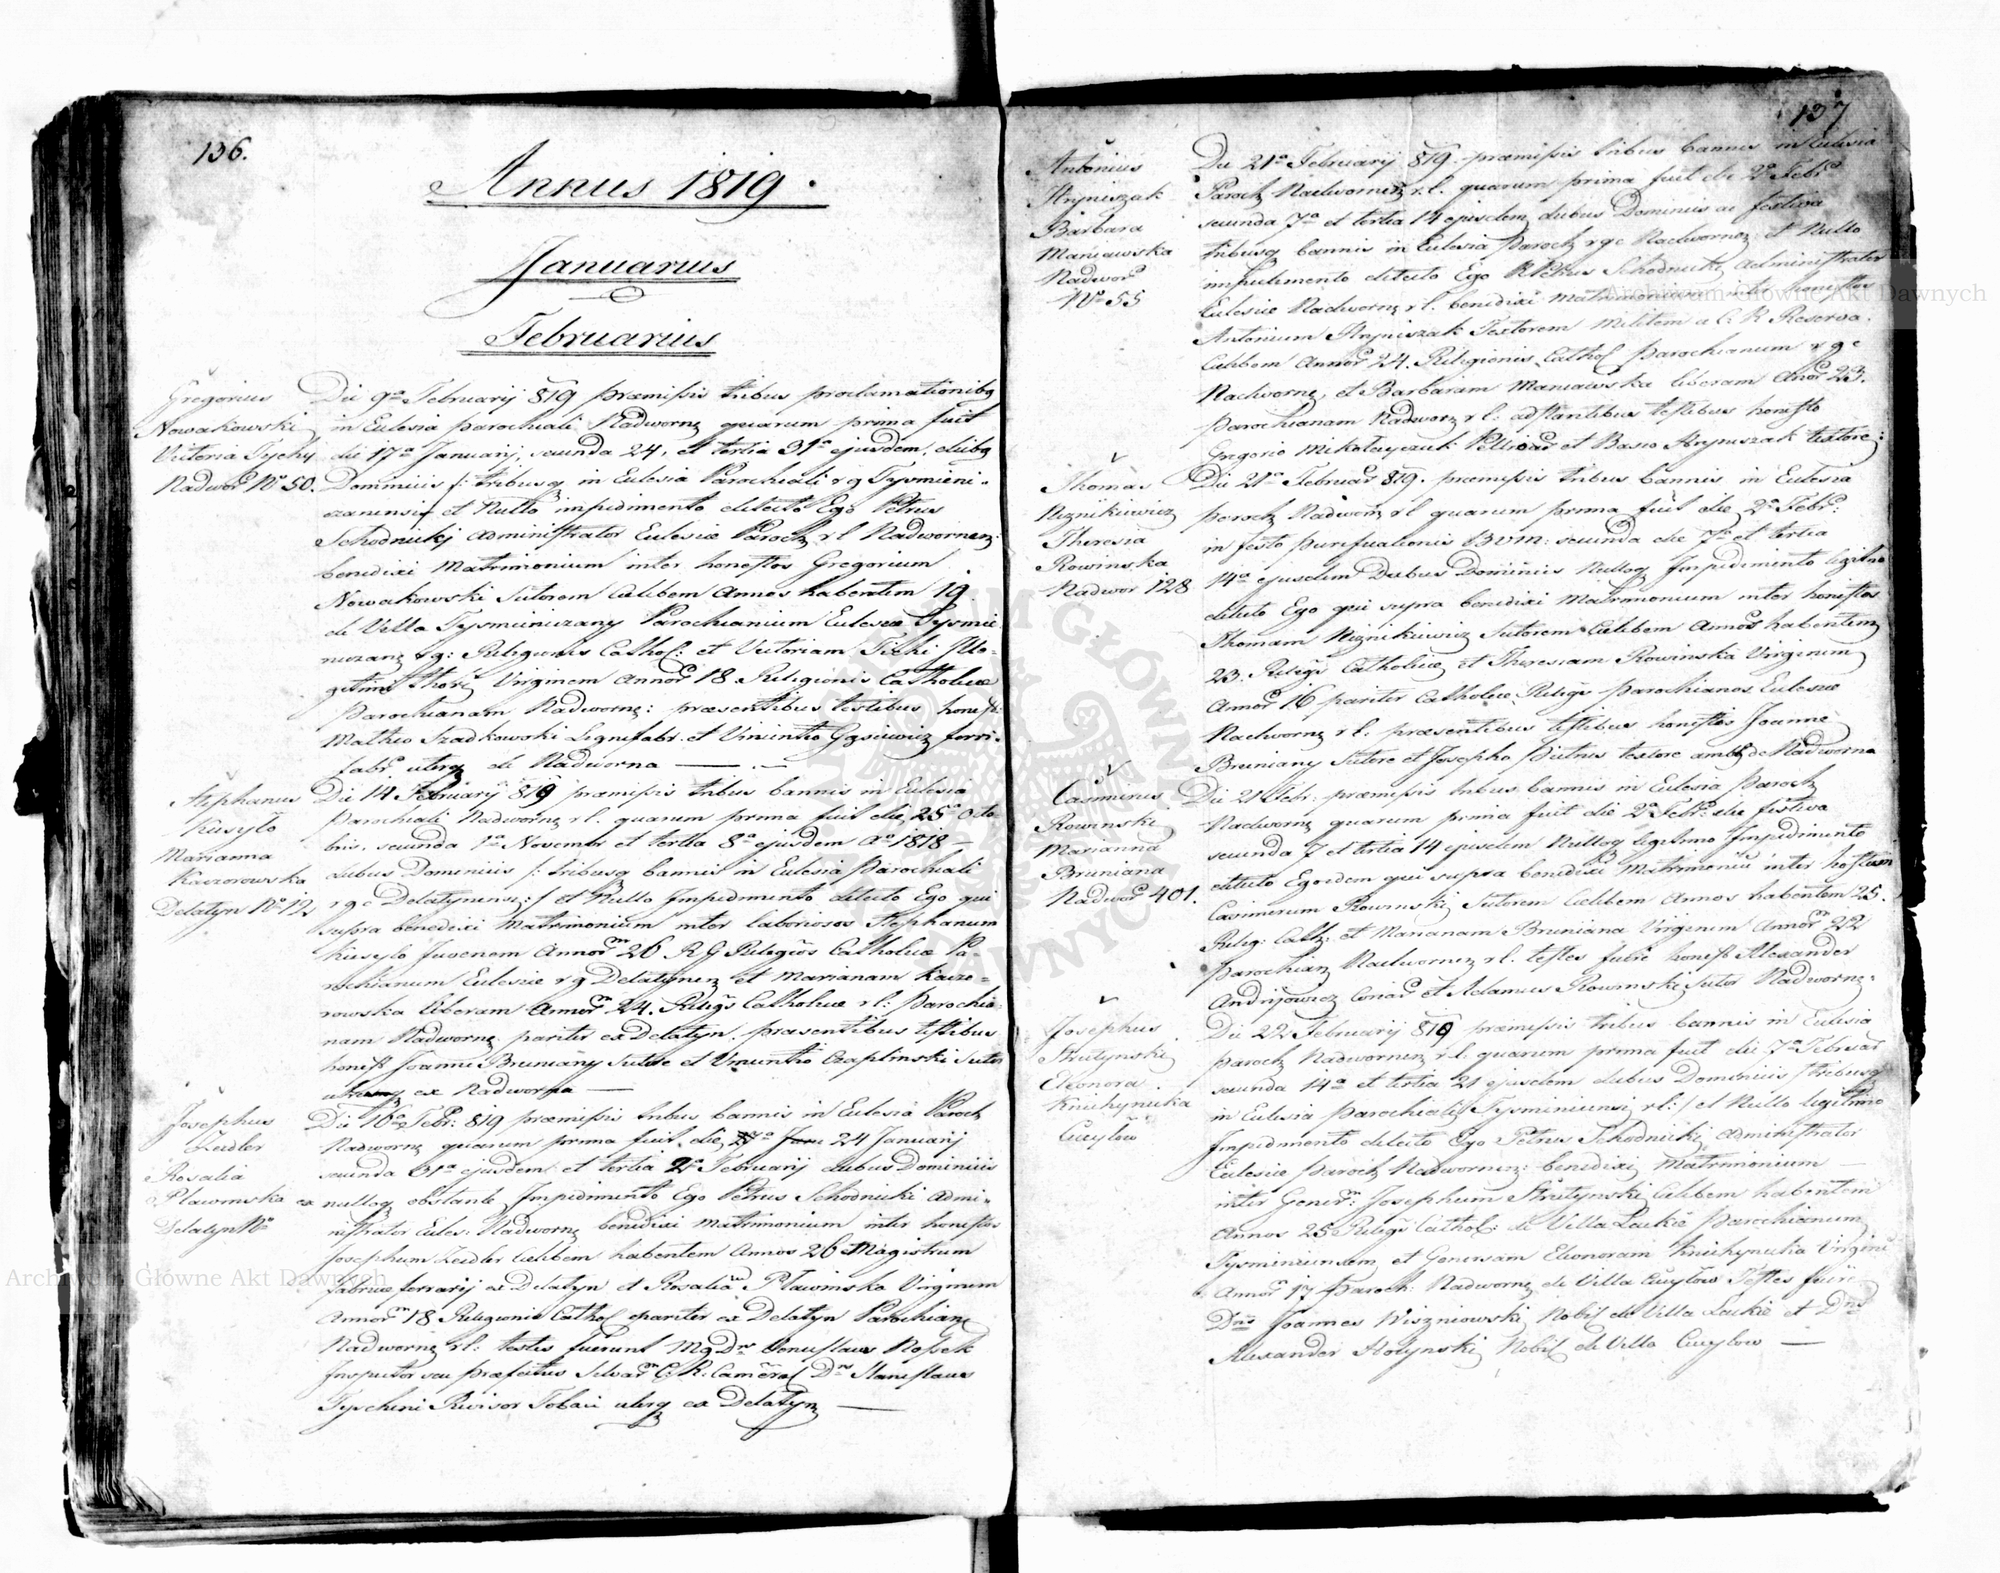 136.
Annus 1819.
Januarius
Februarius
Gregorius
Nowakowski
Victoria Tychy
Nadwor N° 50.
Die 9na Februarij 819 praemissis tribus proclamationibq
in Eclesia parochiali Nadworne quarum prima fuit
die 17a Januarij, secunda 24, et tertia 31a ejusdem, diebq
Dominicis /: tribusq in Eclesia Parochiali r g Tysmieni-
czanensi et Nullo impedimento detecto Ego Petrus
Schodnicki Administrator Eclesiae Paroch r l Nadwornen:
benedixi Matrimonium inter honestos Gregorium
Nowakowski Sutorem Caelibem Annos habentem 19
de Villa Tysmieniczany Parochianum Eclesiae Tysmie
niczane r g: Religionis Cathol: et Victoriam Tichi Ille-
gitimi thori Virginem Annor 18 Religionis Catholicae
Parochianam Nadworne: praesentibus testibus honest:
Matheo Szadkowski Lignifabr. et Vincentio Gąsiewicz ferri-
fabr. utrq de Nadworna
Stephanus
Kusyło
Marianna
Kaczorowska
Delatyn N° 12
Die 14 Februarij 819 praemissis tribus bannis in Eclesia
Parochiali Nadworne r l. quarum prima fuit die 25a Octo-
bris, secunda 1a Novembr et tertia 8a ejusdem A° 1818
diebus Dominicis /: tribusq bannis in Eclesia Parochiali
r g c Delatynens: / et Nullo Impedimento detecto Ego qui
supra benedixi Matrimonium inter laboriosos Stephanum
Kusylo Juvenem Annor 26 R G Religios Catholicae Pa-
rochianum Eclesiae r g Delatynen et Marianam Kaczo-
rowska liberam Annor 24. Religs Catholicae r l: Parochia-
nam Nadworne pariter ex Delatyn. praesentibus testibus
honest Joanne Bruniany Sutore et Vincentio Czaplinski Sutor
utrinq ex Nadworna
Josephus
Zeidler
Rosalia
Plawinska ex
Delatyn N°
Die 16a Febr: 819 praemissis tribus bannis in Eclesia Paroch
Nadworne quarum prima fuit die 24 Januarij
secunda 31a ejusdem et tertia 2a Februarij diebus Dominicis
nulloq obstante Impedimento Ego Petrus Schodnicki Admi-
nistrator Ecles: Nadworne benedixi Matrimonium inter honestos
Josephum Zeidler Caelibem habentem Annos 26 Magistrum
fabricae ferrarij ex Delatyn et Rosaliam Plawinska Virginem
Annor 18 Religionis Cathol pariter ex Delatyn Parochiane
Nadworne r l: testes fuerunt Mg Dnus Venceslaus Nossek
Inspector seu praefectus Silvar C. R. Cameral Dnus Stanislaus
Tyscheni Revisor Tobaci utrq ex Delatyn
137
Antonius
Hryniszak
Barbara
Maniawska
Nadwor
N° 55
Die 21a Februarij 819. praemissis tribus bannis in Eclesia
Paroch Nadwornen r. l. quarum prima fuit die 2a Febr
secunda 7a et tertia 14 ejusdem diebus Dominicis ac festiva
tribusq bannis in Eclesia Paroch r g c Nadwornen: et Nullo
impedimento detecto Ego Petrus Schodnicki Administrator
Eclesiae Nadworne r l. benedixi Matrimonium inter honestos
Antonium Hryniszak Textorem Militem a C. R. Reserva.
Caelibem Annor 24. Religionis Cathol Parochianum r g c
Nadworne, et Barbaram Maniawska liberam Anor 23.
parochianam Nadworz r l: adstantibus testibus honesto
Gregorio Mikołayczuk Pellioar et Basio Hryniszak textore:
Thomas
Niznikiewicz
Theresia
Rowinska
Nadwor 128
Die 21a Februar 819. praemissis tribus bannis in Eclesia
paroch Nadworn r l quarum prima fuit die 2a Febr:
in festo purificationis BVM: secunda die 7a et tertia
14a ejusdem Diebus Dominicis Nulloq Impedimento legitimo
detecto Ego qui supra benedixi Matrimonium inter honestos
Thomam Niznikiewicz Sutorem Caelibem Annos habentem
23. Religs Catholicae, et Theresiam Rowinska Virginem
Annor 16 pariter Catholicae Religs parochianos Eclesiae
Nadworne r l: praesentibus testibus honestos Joanne
Bruniany Sutore et Josepho Pietrus textore ambq de Nadworna
Casimirus
Rowinski
Marianna
Bruniana
Nadwor 401.
Die 21 Febr: praemissis tribus bannis in Eclesia Paroch
Nadworne quarum prima fuit die 2a Febr: die festiva
secunda 7 et tertia 14 ejusdem Nulloq legitimo Impedimento
detecto Ego idem qui supra benedixi Matrimoniu inter hostum
Casimirum Rowinski Sutorem Caelibem Annos habentem 25.
Relig: Cath: et Marianam Bruniana Virginem Annor 22
parochian Nadwornen r l. testes fuere honest Alexander
Andrijowicz Coriar et Adamus Rowinski Sutor Nadworne.
Josephus
Strutynski
Eleonora
Kniehynicka
Cucyłow
Die 22 Februarij 819 praemissis tribus bannis in Eclesia
paroch Nadwornen r. l. quarum prima fuit die 7a Februar
secunda 14a et tertia 21 ejusdem diebus Dominicis /tribusq
in Eclesia parochiali Tysmieniensi r l: / et Nullo legitimo
Impedimento detecto Ego Petrus Schodnicki Administrator
Eclesiae Paroch Nadwornen: benedixi Matrimonium
inter Gener: Josephum Strutynski Caelibem habentem
Annos 25 Religs Cathol: de Villa Lackie Parochianum
Tysmieniensem et Generosam Eleonoram Kniehynicka Virgine
Annor 17 Paroch: Nadworne de Villa Cucyłow Testes fuere
Dnus Joannes Wiszniowski Nobil de Villa Lackie et Dnus
Alexander Hołynski Nobil de Villa Cucylow
Archiwum Główne Akt Dawnych
Archiwum Główne Akt Dawnych
ARCHIWUM GŁÓWNE AKT DAWNYCH